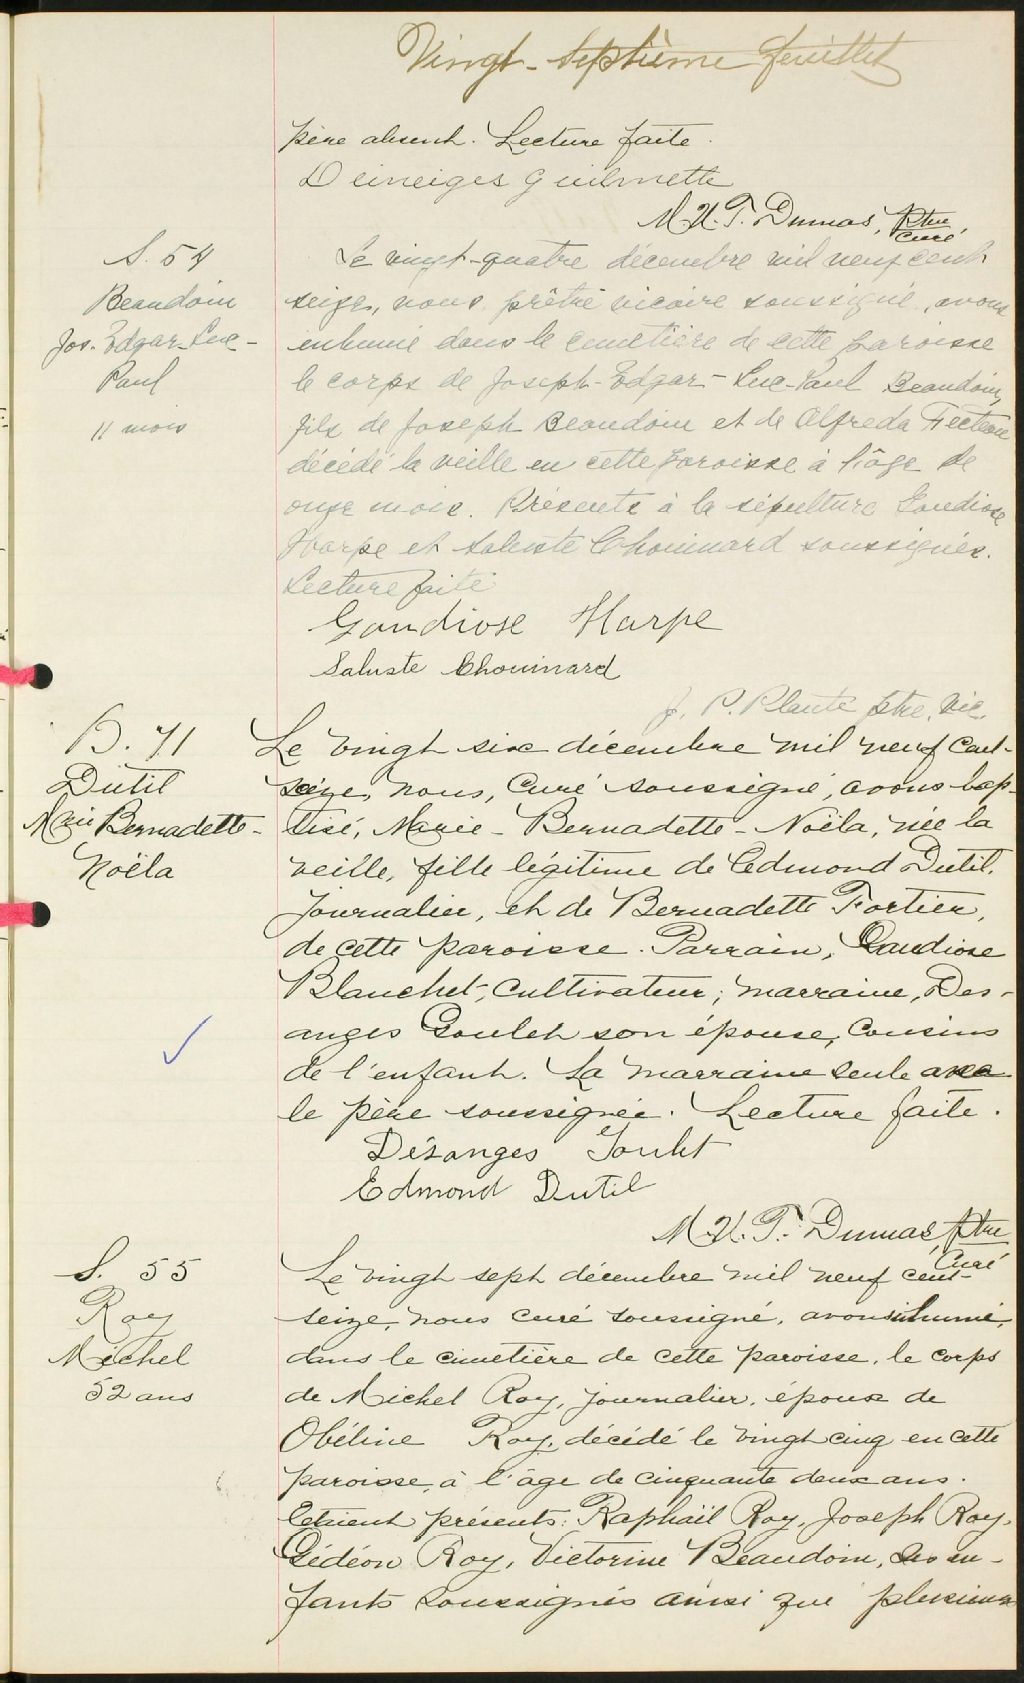 Vingt-septième feuillet
père absent. Lecture faite.
Deineiges Guilmette
M.U.T. Dumas, Ptre
curé
S. 54
Beaudoin
Jos. Edgar-Luc-
Paul
11 mois
Le vingt-quatre décembre mil neuf cent
seize, nous prêtre vicaire soussigné, avons
inhumé dans le cimetière de cette paroisse
le corps de Joseph-Edgar-Luc-Paul Beaudoin,
fils de Joseph Beaudoin et de Alfreda Fecteau
décédé la veille en cette paroisse à l'âge de
onze mois. Présents à la sépulture Gaudiose
Harpe et Saluste Chouinard soussignés.
Lecture faite
Gaudiose Harpe
Saluste Chouinard
J. P. Plante ptre, vic.
B. 71
Dutil
Marie Bernadette-
Noëla
Le vingt six décembre mil neuf cent-
seize, nous, curé soussigné, avons bap-
tisé, Marie-Bernadette-Noëla, née la
veille, fille légitime de Edmond Dutil,
journalier, et de Bernadette Fortier,
de cette paroisse. Parrain, Gaudiose
Blanchet, cultivateur; marraine, Des-
anges Goulet son épouse, cousins
de l'enfant. La marraine seule avec
le père soussignée. Lecture faite.
Désanges Goulet
Edmond Dutil
M.U.T. Dumas, ptre
Curé
S. 55
Roy
Michel
52 ans
Le vingt sept décembre mil neuf cent-
seize, nous curé soussigné, avons inhumé,
dans le cimetière de cette paroisse, le corps
de Michel Roy, journalier, époux de
Obéline Roy, décédé le vingt cinq en cette
paroisse, à l'âge de cinquante deux ans.
Etaient présents: Raphaël Roy, Joseph Roy,
Gédéon Roy, Victorine Beaudoin, ses en-
fants soussignés ainsi que plusieurs